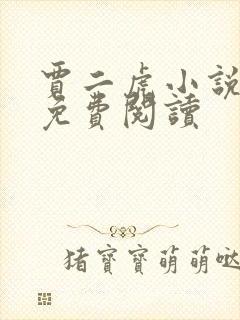 賈二虎小說
免費閱讀
猪寶寶萌萌噠